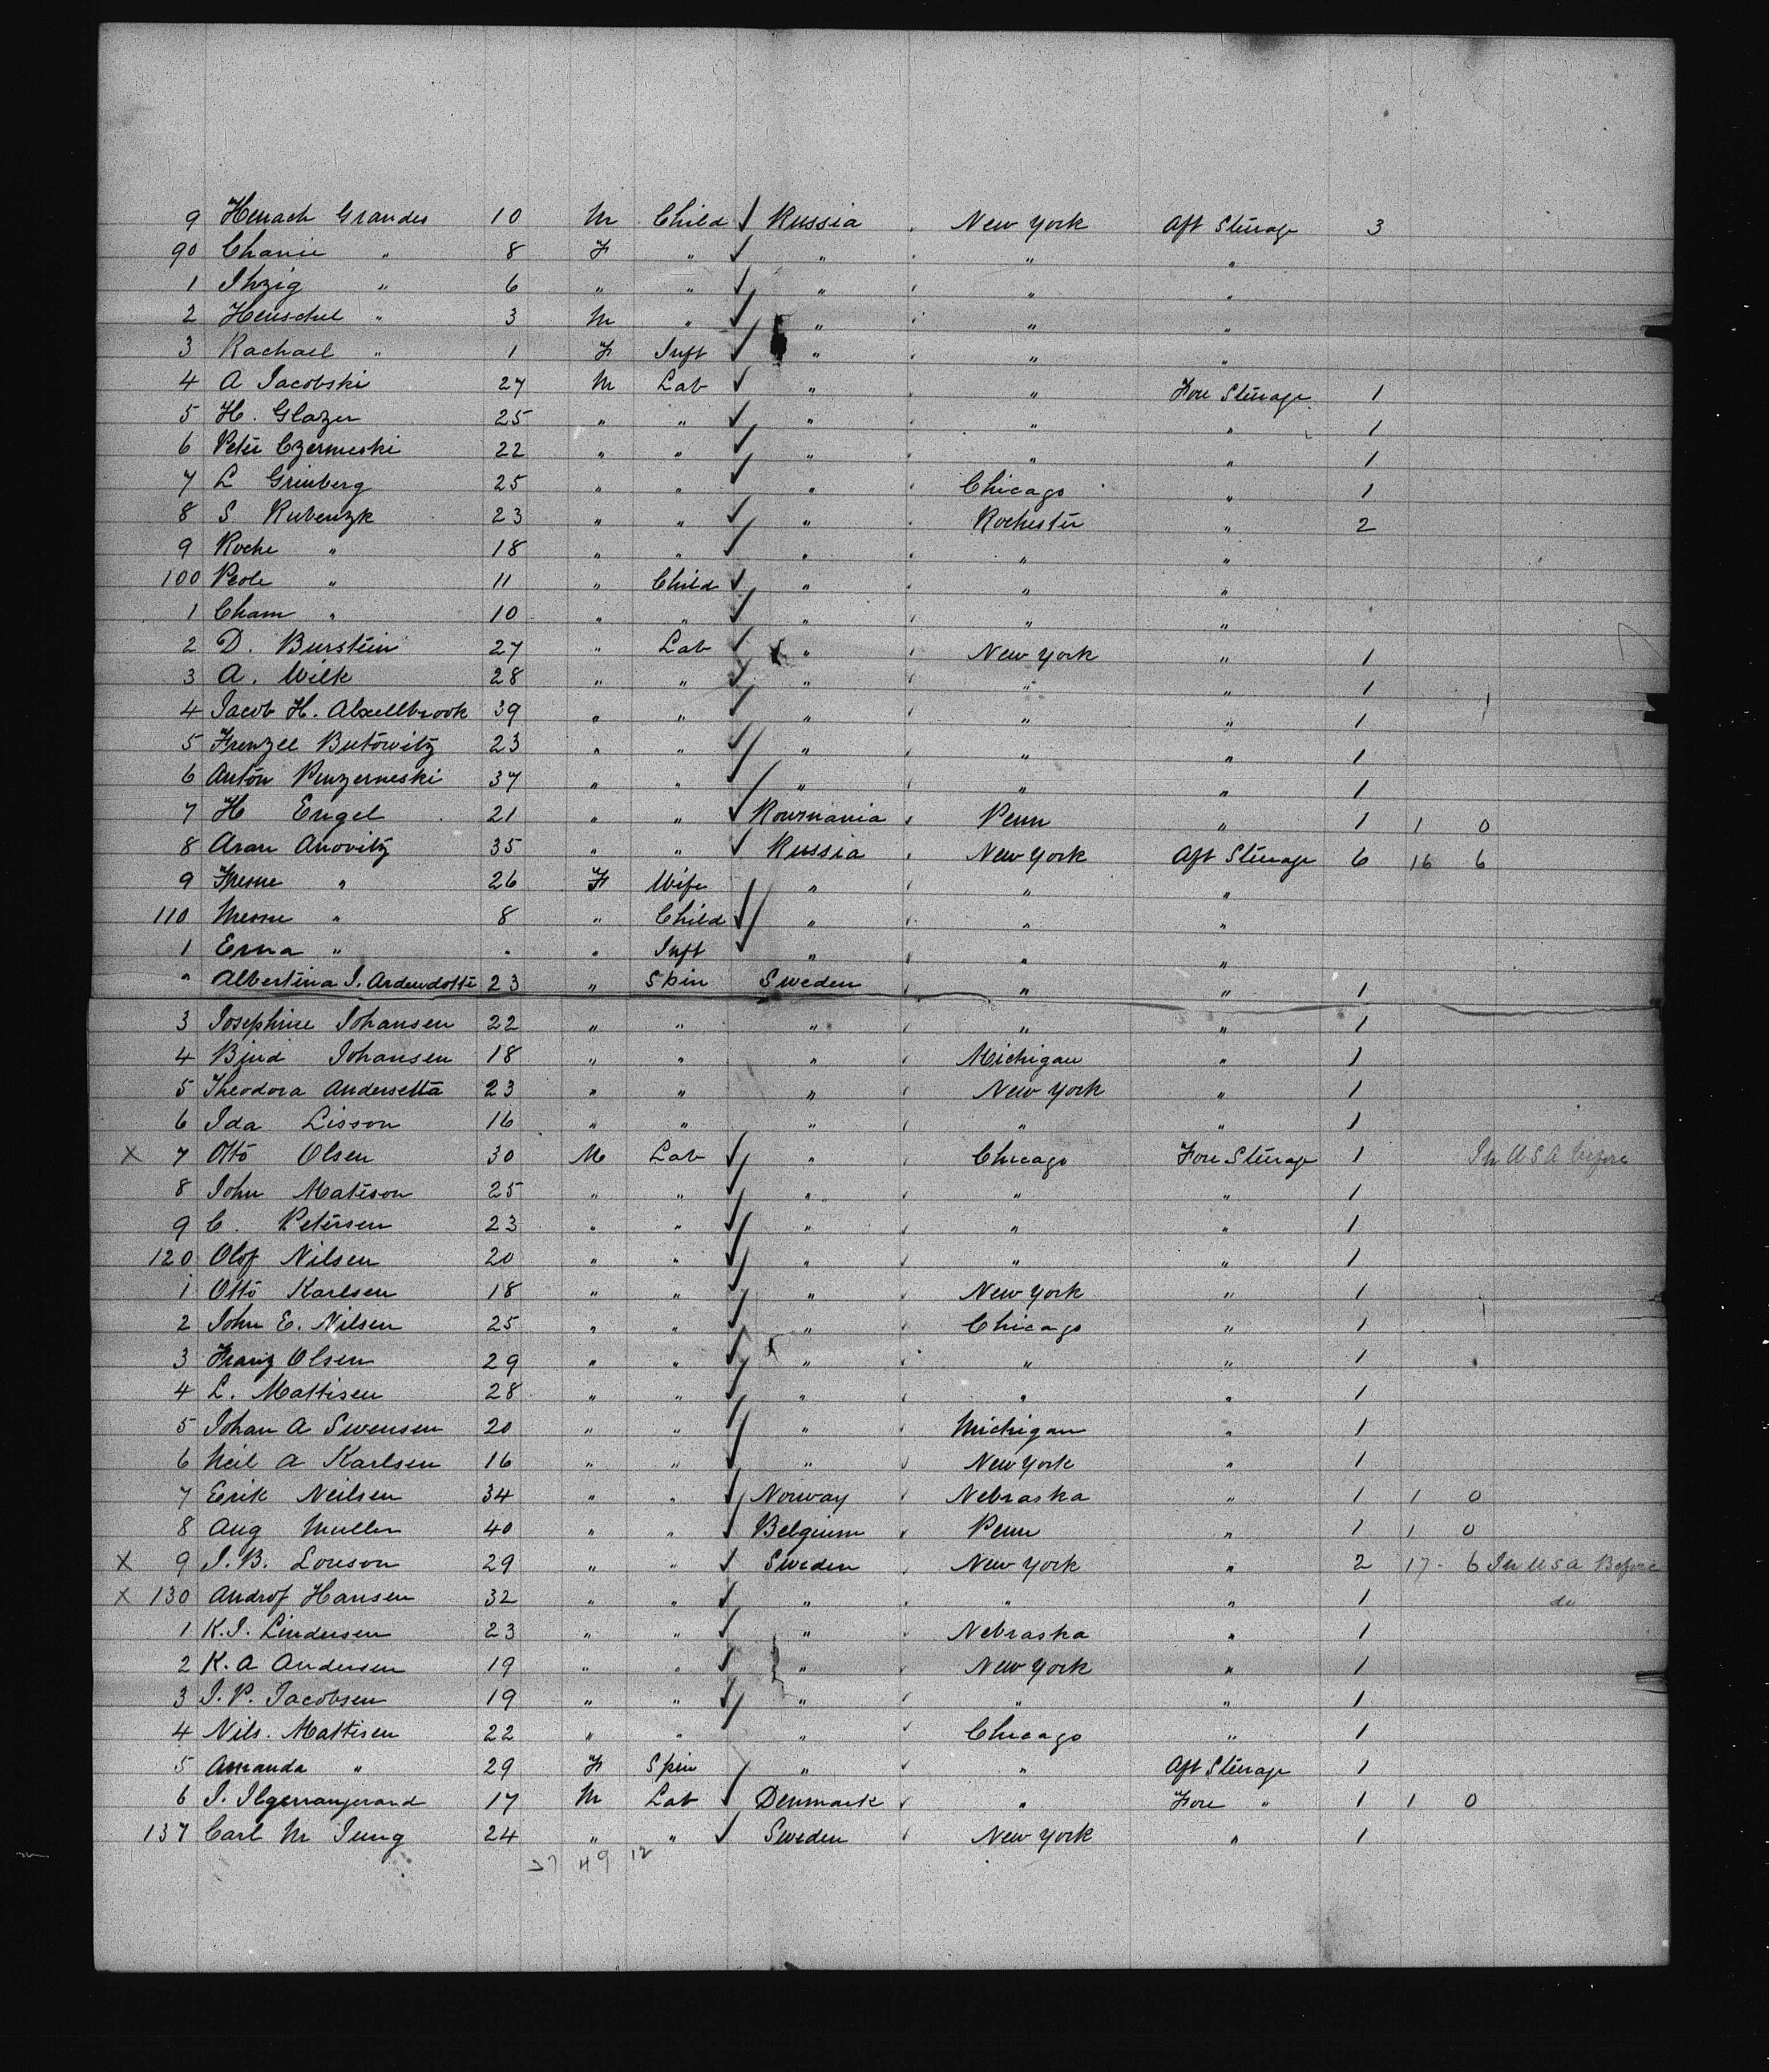 9 Henach Grandes 10 M Child ✓ Russia New York Aft Steerage 3
90 Chanie " 8 F " ✓ " " "
1 Ihzig " 6 " " ✓ " " "
2 Henschel " 3 M " ✓ " " "
3 Rachael " 1 F Inft ✓ " " "
4 A Jacobski 27 M Lab ✓ " " Fore Steerage 1
5 H. Glazer 25 " " ✓ " " " 1
6 Peter Czermeski 22 " " ✓ " " " 1
7 L Grinberg 25 " " ✓ " Chicago " 1
8 S Rubenzk 23 " " ✓ " Rochester " 2
9 Roche " 18 " " ✓ " " "
100 Peole " 11 " Child ✓ " " "
1 Cham " 10 " " ✓ " " "
2 D. Burstein 27 " Lab ✓ " New York " 1
3 A. Wilk 28 " " ✓ " " " 1
4 Jacob H. Alxellbrook 39 " " ✓ " " " 1
5 Frenzel Butowitz 23 " " ✓ " " " 1
6 Anton Penzerneski 37 " " ✓ " " " 1
7 H Engel 21 " " ✓ Roumania Penn " 1 1 0
8 Aran Anovitz 35 " " ✓ Russia New York Aft Steerage 6 16 6
9 Fresne " 26 F Wife " " "
110 Mesne " 8 " Child ✓ " " "
1 Erna " " " Inft ✓ " " "
" Albertina J. Ardendotte 23 " Spin Sweden " " 1
3 Josephine Johansen 22 " " " " " 1
4 Bjud Johansen 18 " " " Michigan " 1
5 Theodora Andersetta 23 " " " New York " 1
6 Ida Lisson 16 " " " " " 1
X 7 Otto Olsen 30 M Lab ✓ " Chicago Fore Steerage 1 In USA before
8 John Matison 25 " " ✓ " " " 1
9 C. Petersen 23 " " ✓ " " " 1
120 Olof Nilsen 20 " " ✓ " " " 1
1 Otto Karlsen 18 " " ✓ " New York " 1
2 John E. Nilsen 25 " " ✓ " Chicago " 1
3 Franz Olsen 29 " " ✓ " " " 1
4 L. Mattisen 28 " " ✓ " " " 1
5 Johan A Swensen 20 " " ✓ " Michigan " 1
6 Neil A Karlsen 16 " " ✓ " New York " 1
7 Erik Neilsen 34 " " ✓ Norway Nebraska " 1 1 0
8 Aug Muller 40 " " ✓ Belgium Penn " 1 1 0
X 9 J. B. Louson 29 " " ✓ Sweden New York " 2 17 - 6 In USA Before
X 130 Androf Hansen 32 " " ✓ " " " 1 do
1 K. J. Lindersen 23 " " ✓ " Nebraska " 1
2 K. A Andersen 19 " " ✓ " New York " 1
3 J. P. Jacobsen 19 " " ✓ " " " 1
4 Nils. Mattisen 22 " " " Chicago " 1
5 Amanda " 29 F Spin " " Aft Steerage 1
6 J. Ilgerranjerand 17 M Lab ✓ Denmark " Fore " 1 1 0
137 Carl M Jung 24 " " ✓ Sweden New York " 1
37 49 12